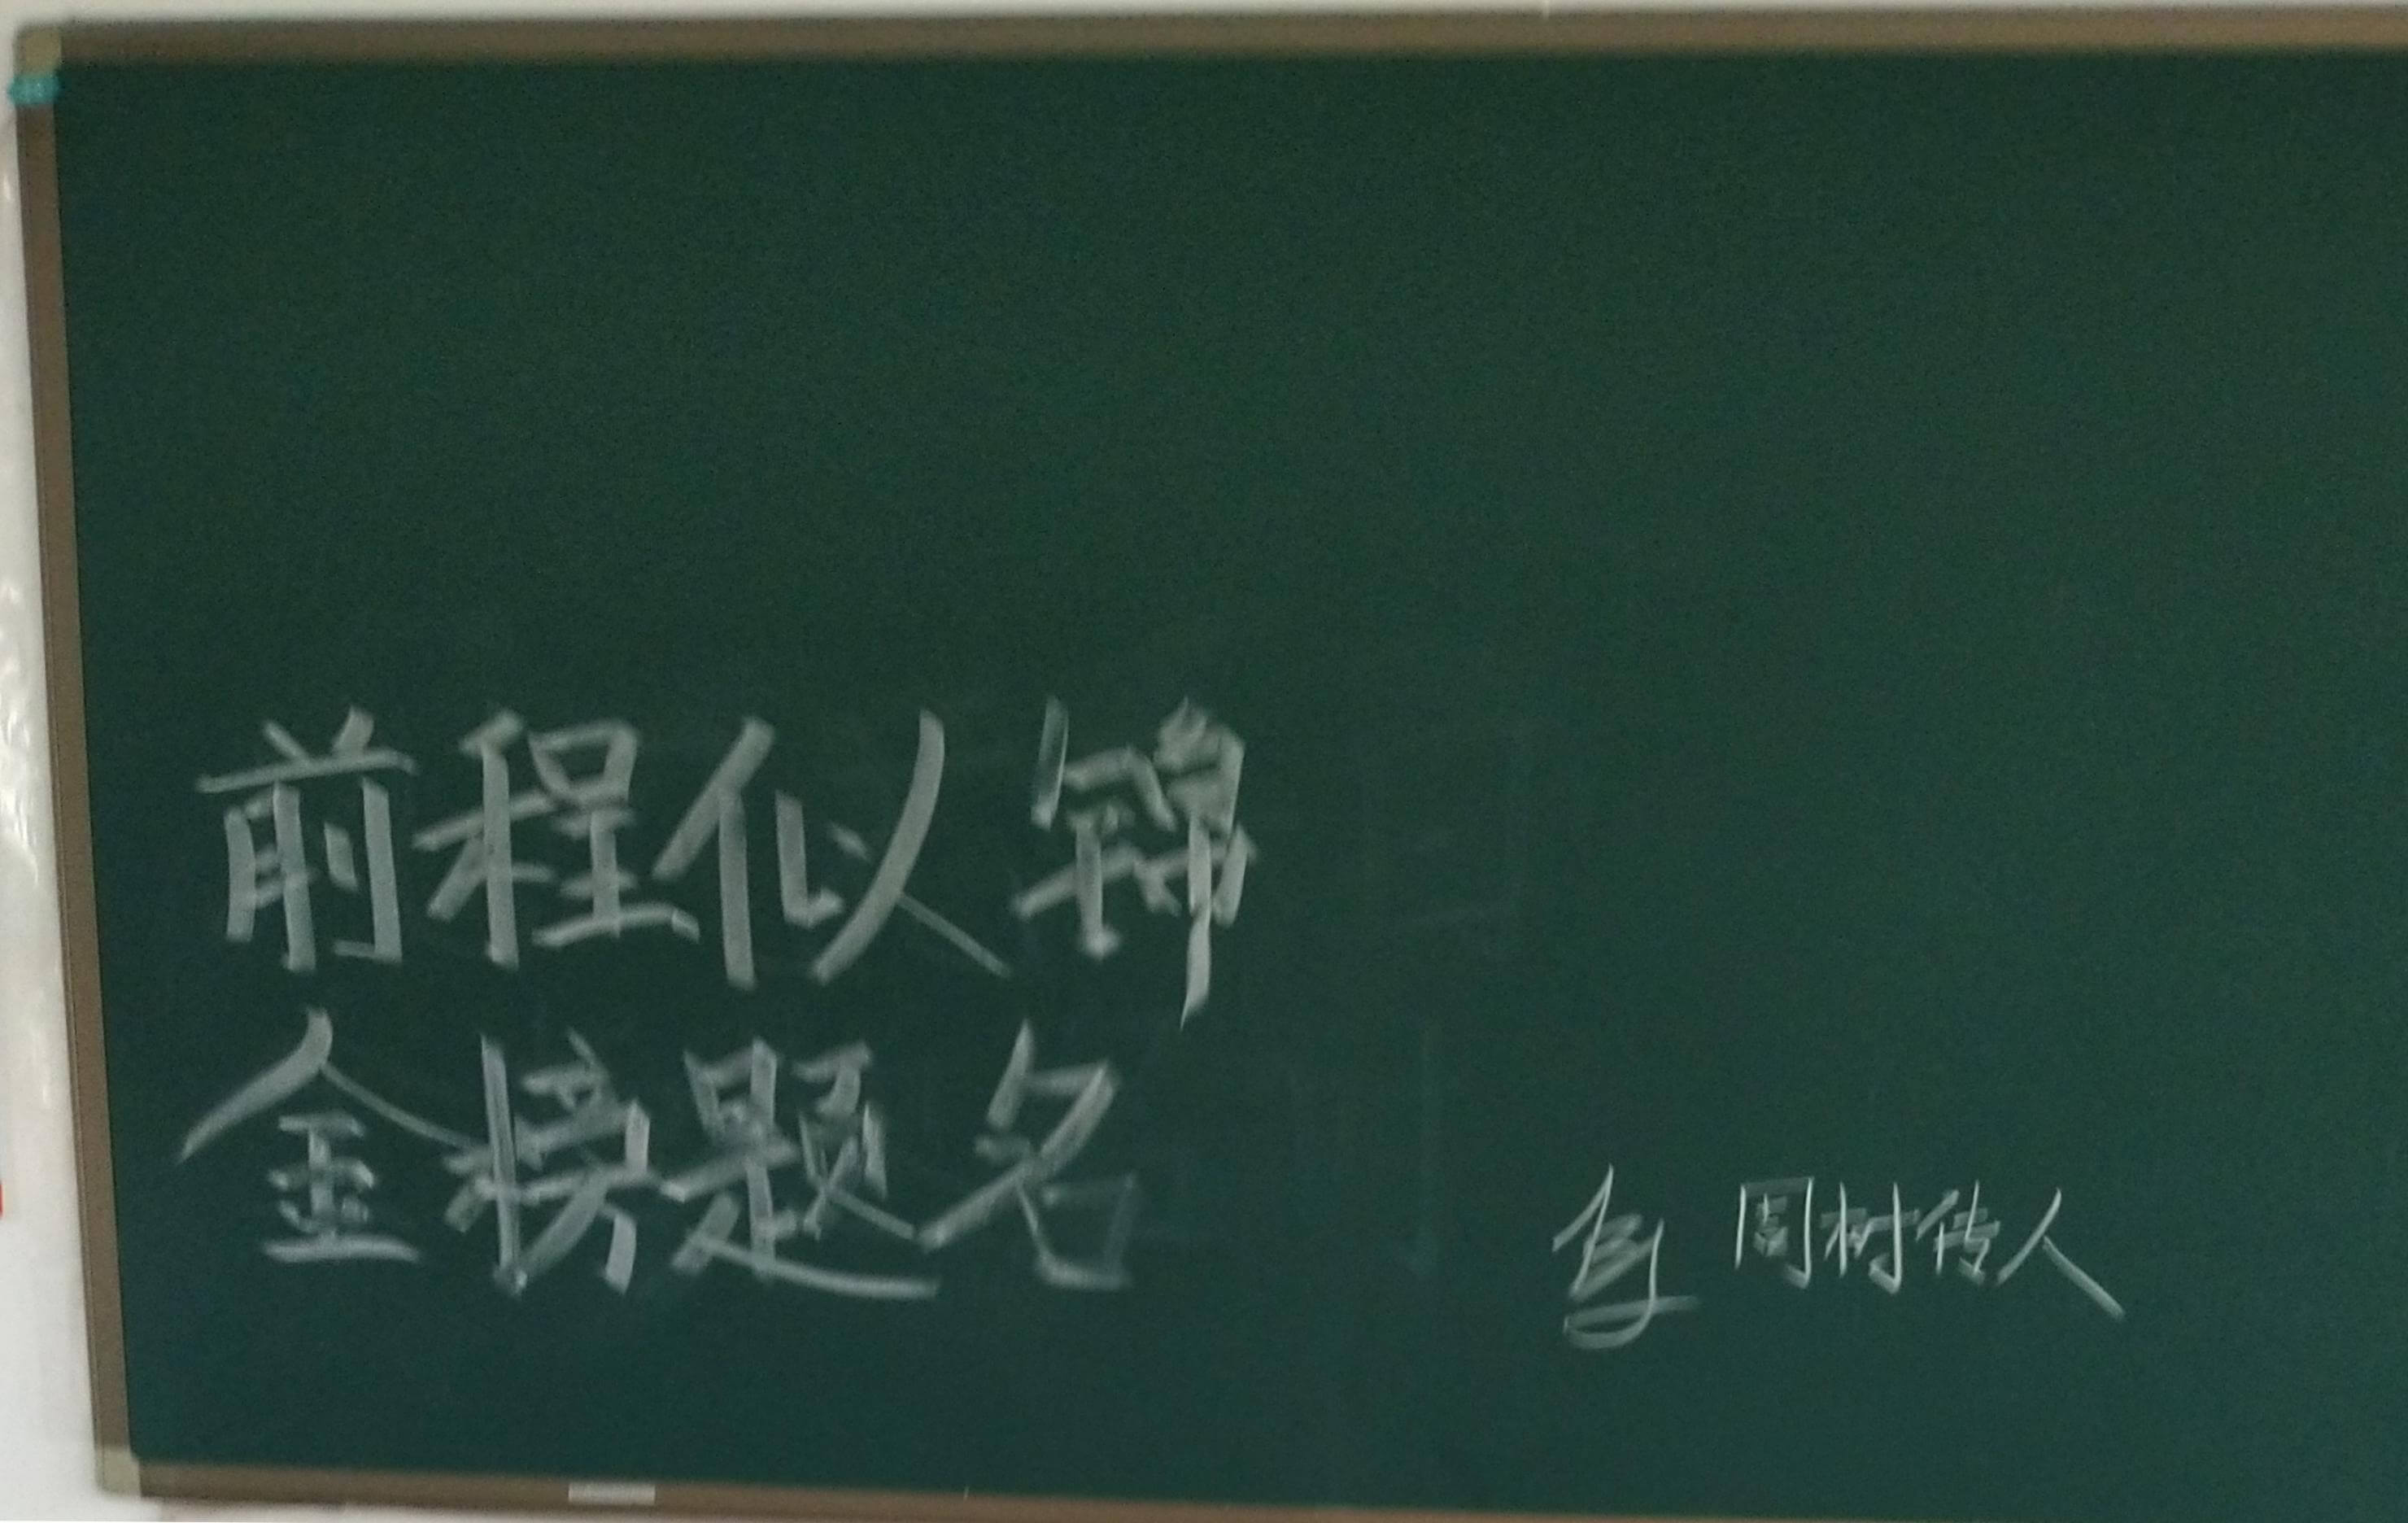 前程似锦
金榜题名
周树传人